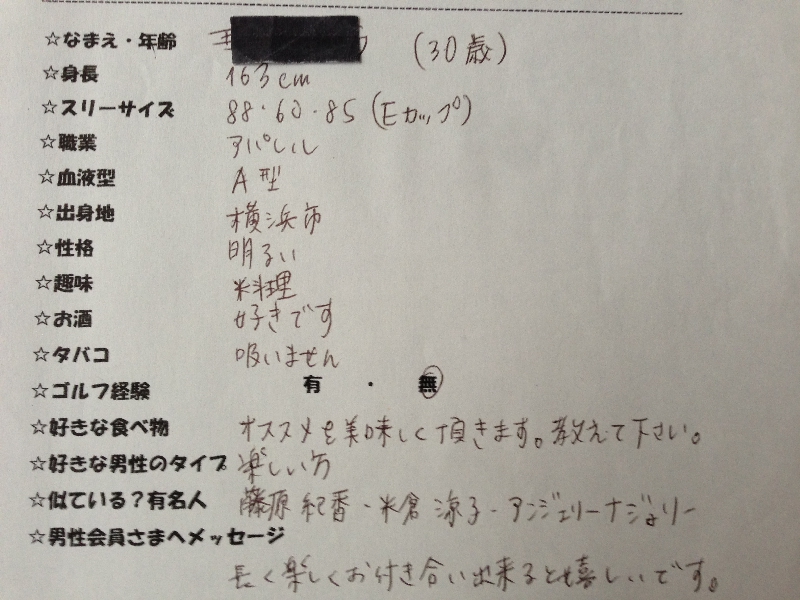 ☆なまえ・年齢 (30歳)
☆身長 163cm
☆スリーサイズ 88・60・85(Eカップ)
☆職業 アパレル
☆血液型 A型
☆出身地 横浜市
☆性格 明るい
☆趣味 料理
☆お酒 好きです
☆タバコ 吸いません
☆ゴルフ経験 有 ・ 無
☆好きな食べ物 オススメを美味しく頂きます。教えて下さい。
☆好きな男性のタイプ 楽しい方
☆似ている?有名人 藤原紀香・米倉涼子・アンジェリーナジョリー
☆男性会員さまへメッセージ
長く楽しくお付き合い出来ると嬉しいです。